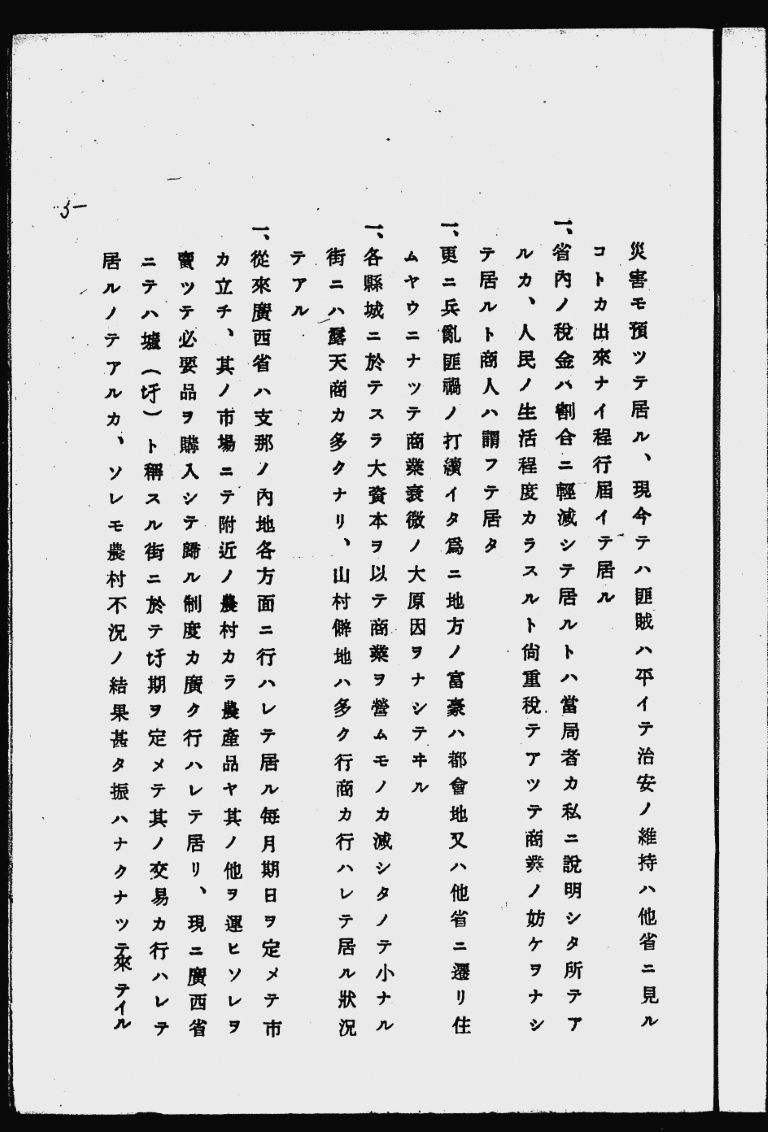 災害モ預ツテ居ル、現今テハ匪賊ハ平イテ治安ノ維持ハ他省ニ見ル
コトカ出來ナイ程行屆イテ居ル
一、省內ノ稅金ハ割合ニ輕減シテ居ルトハ當局者カ私ニ說明シタ所テア
ルカ、人民ノ生活程度カラスルト尙重稅テアツテ商業ノ妨ケヲナシ
テ居ルト商人ハ謂フテ居タ
一、更ニ兵亂匪禍ノ打續イタ爲ニ地方ノ富豪ハ都會地又ハ他省ニ遷リ住
ムヤウニナツテ商業衰微ノ大原因ヲナシテヰル
一、各縣城ニ於テスラ大資本ヲ以テ商業ヲ營ムモノカ減シタノテ小ナル
街ニハ露天商カ多クナリ、山村僻地ハ多ク行商カ行ハレテ居ル狀況
テアル
一、從來廣西省ハ支那ノ內地各方面ニ行ハレテ居ル每月期日ヲ定メテ市
カ立チ、其ノ市場ニテ附近ノ農村カラ農產品ヤ其ノ他ヲ運ヒソレヲ
賣ツテ必要品ヲ購入シテ歸ル制度カ廣ク行ハレテ居リ、現ニ廣西省
ニテハ墟(圩)ト稱スル街ニ於テ圩期ヲ定メテ其ノ交易カ行ハレテ
居ルノテアルカ、ソレモ農村不況ノ結果甚タ振ハナクナツテ來テイル